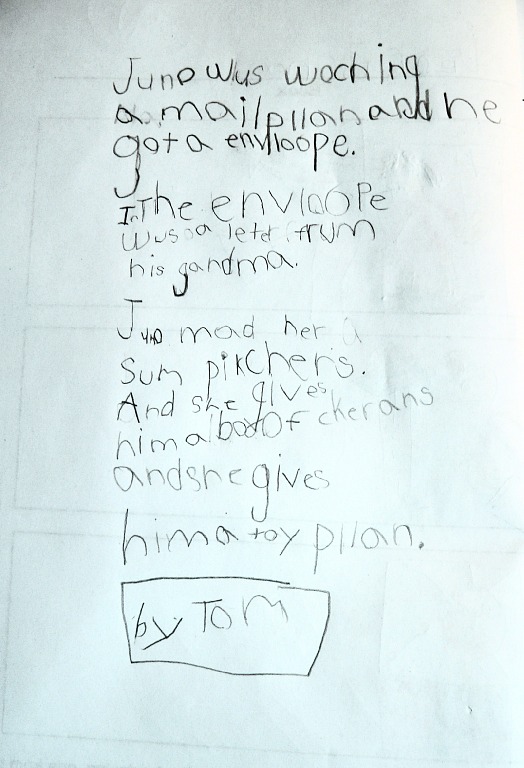 Juno wus woching
a mail pllan and he
got a envloope.
In The envloope
wus a letd frum
his gandma.
Juno mad her a
Sum pikchers.
And she gives
him a box Of ckerans
and she gives
him a toy pllan.
by Tom